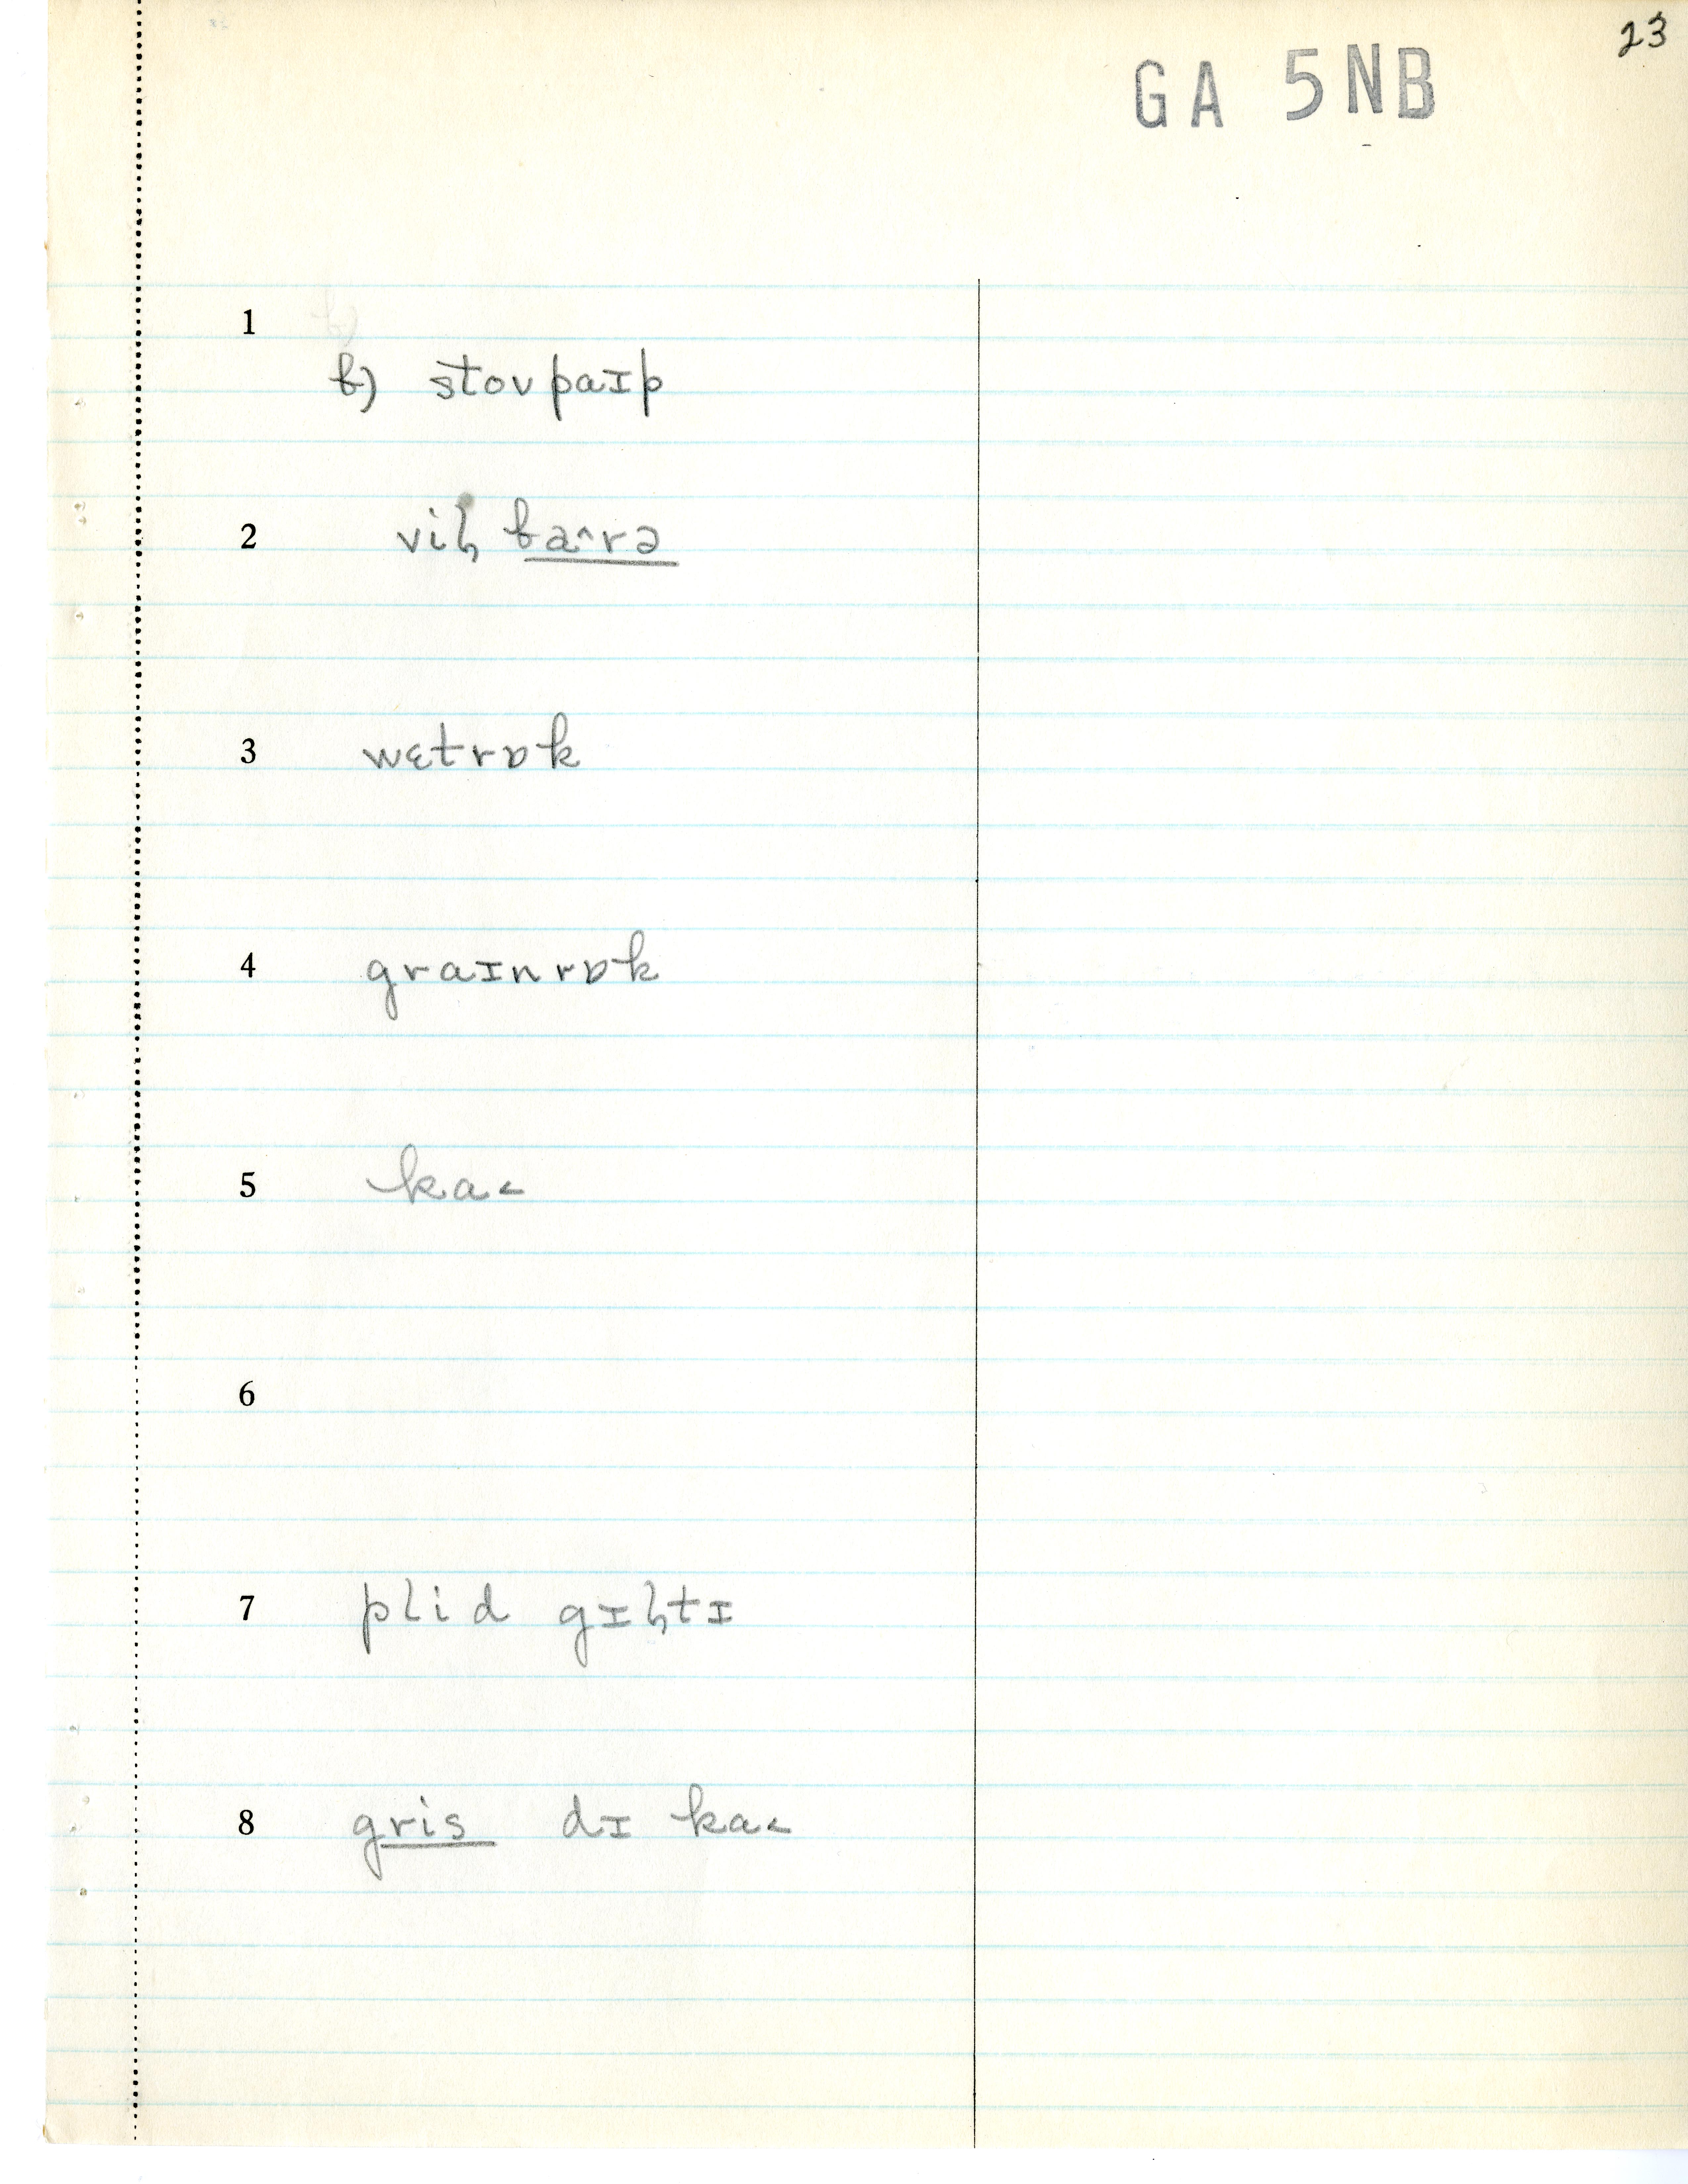 23
GA 5NB
1
b) stovpaɪp
2 vil̡ ba^rə
3 wɛtrɒk
4 graɪnrɒk
5 ka˂
6
7 plid gɪl̡tɪ
8 gris dɪ ka˂